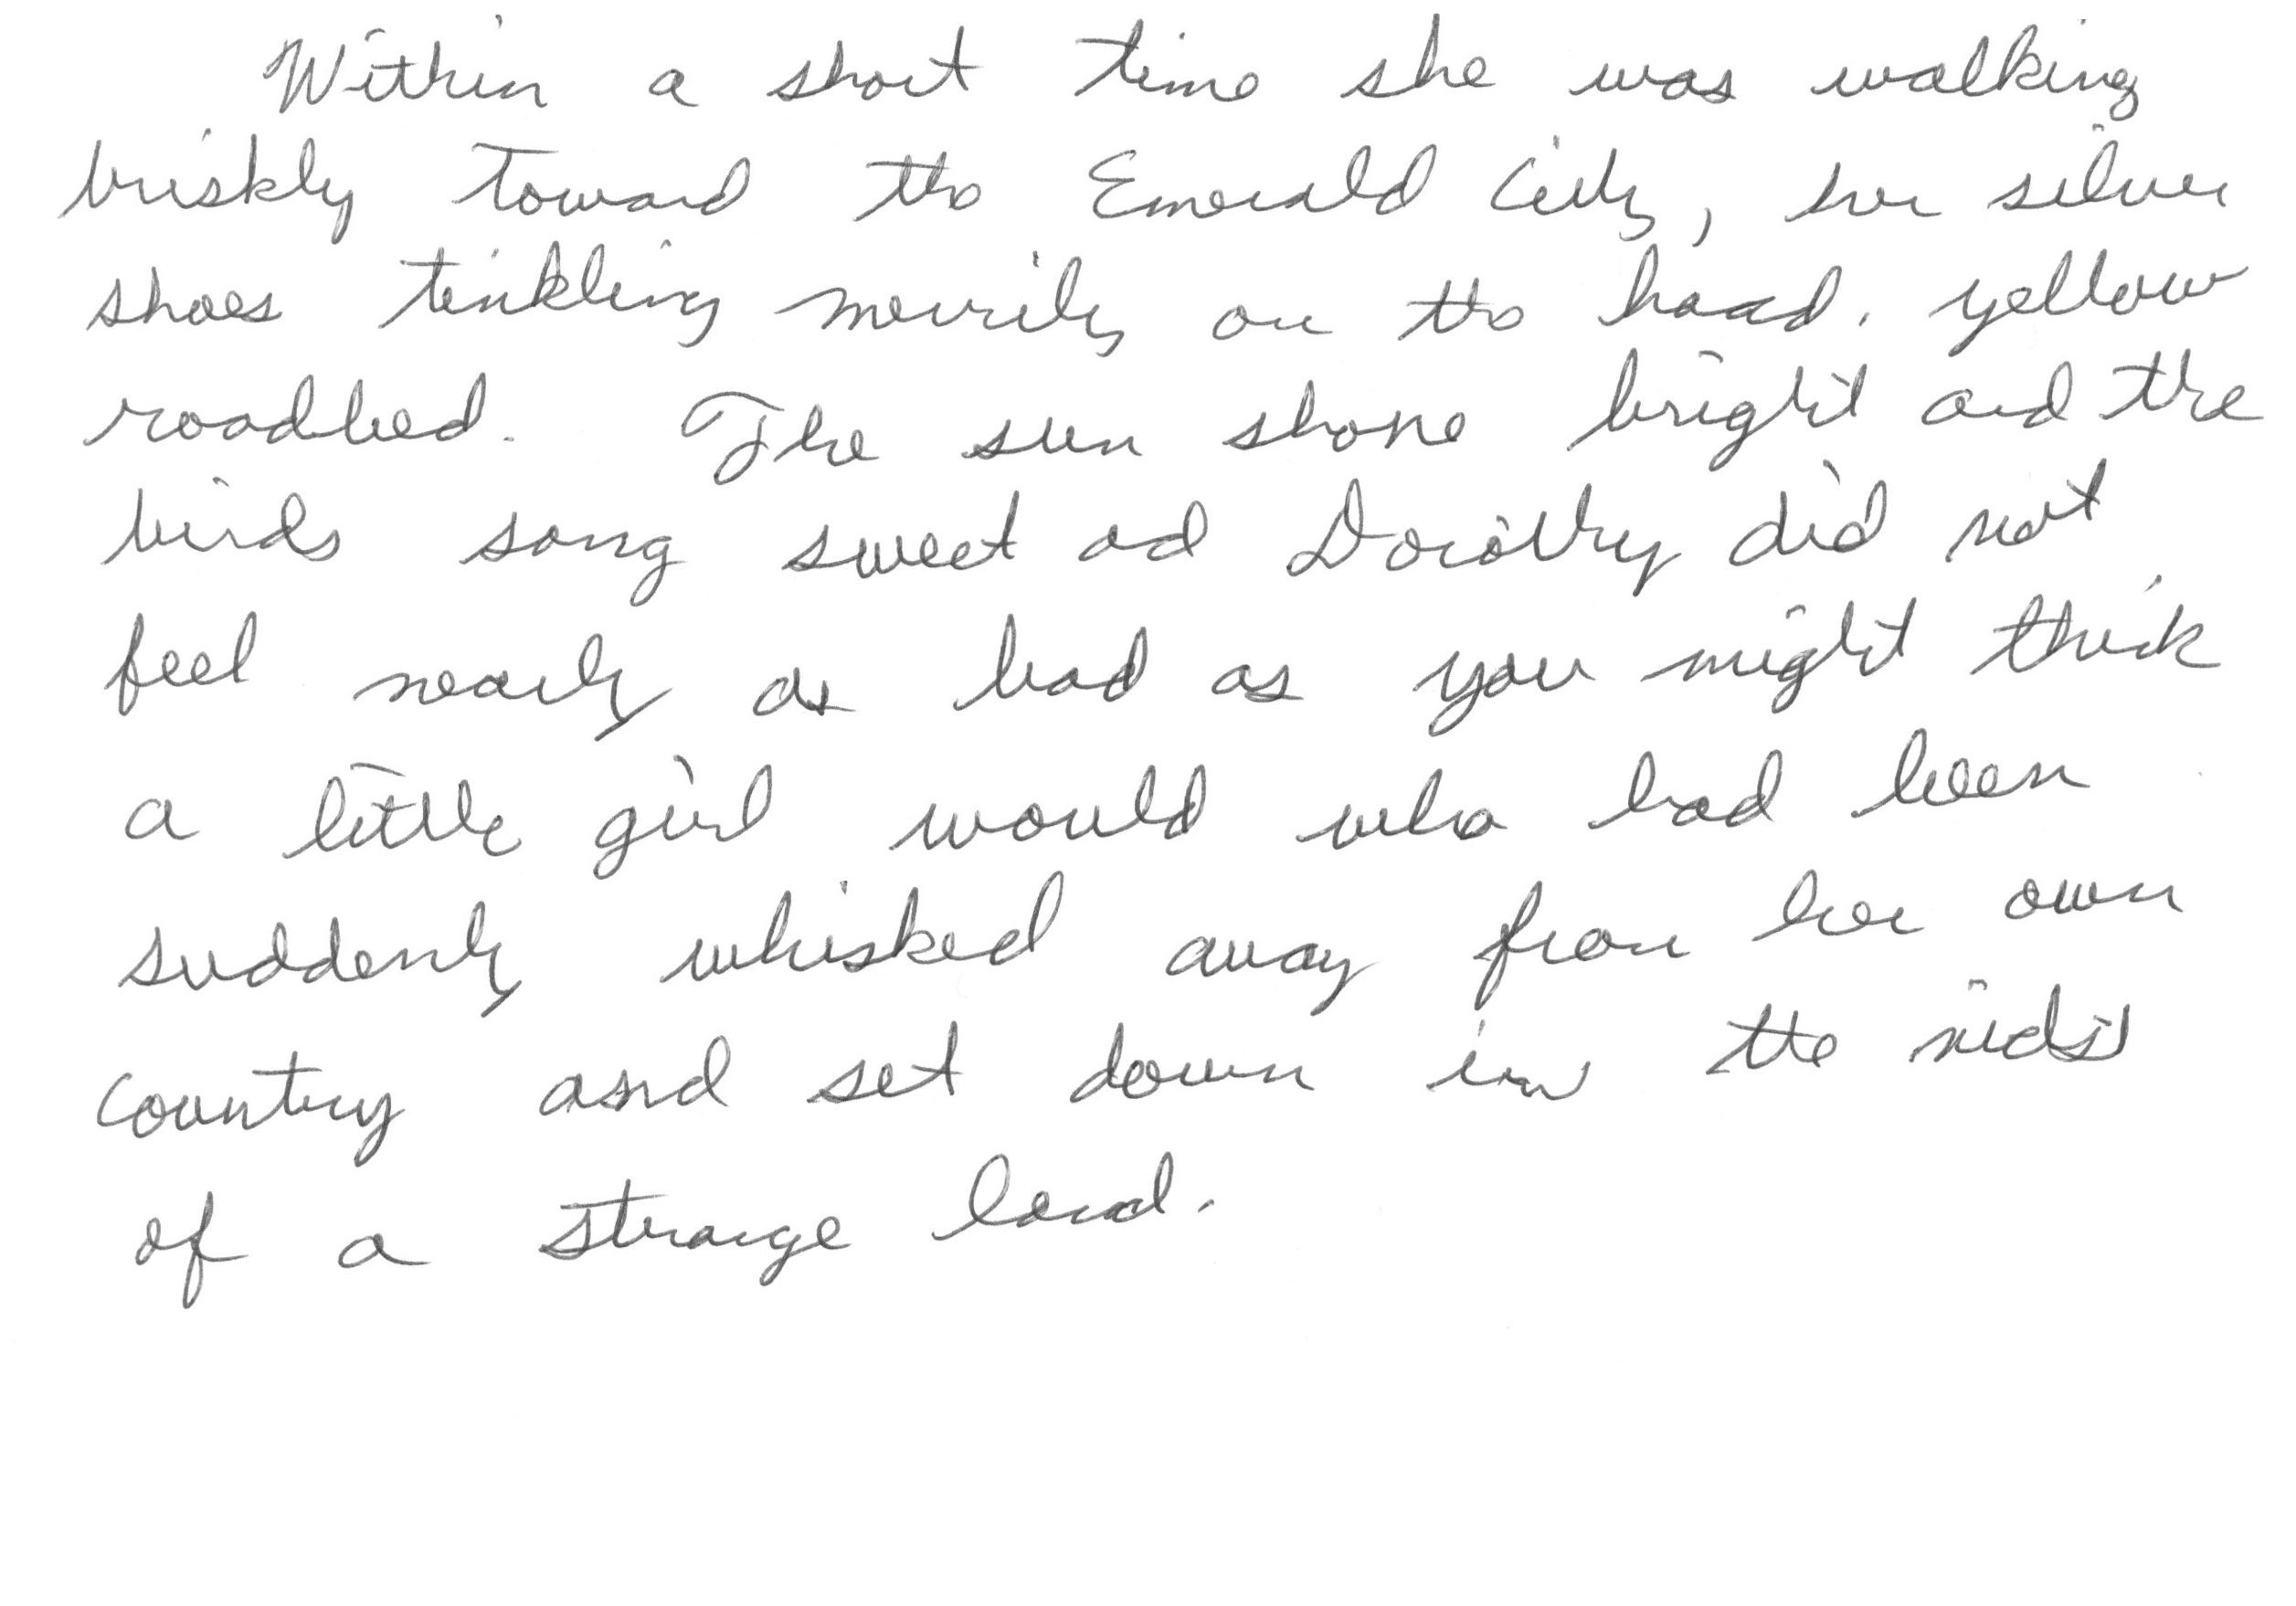 Within a short time she was walking
briskly toward the Emerald City, her silver
shoes tinkling merrily on the hard, yellow
roadbed. The sun shone bright and the
birds song sweet and Dorothy did not
feel nearly as bad as you might think
a little girl would who had been
suddenly whisked away from her own
country and set down in the midst
of a strange land.